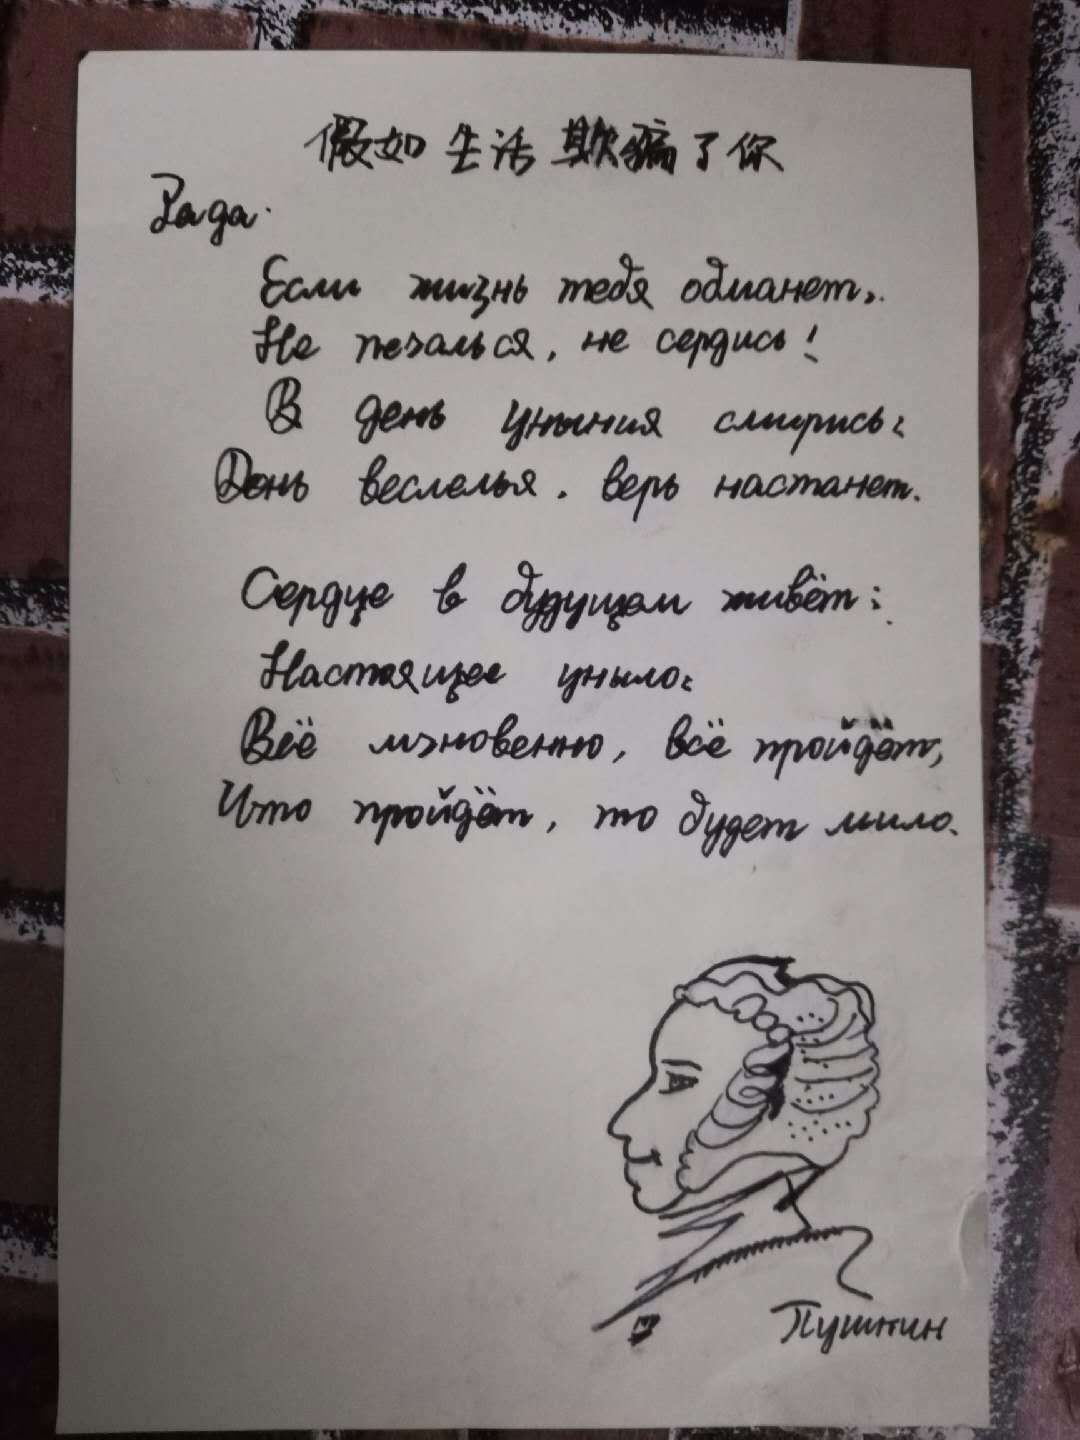 假如生活欺骗了你
Рада.
Если жизнь тебя обманет,
Не печалься, не сердись!
В день уныния смирись:
День веслелья, верь настанет.
Сердце в будущем живёт:
Настоящее уныло:
Всё мгновенно, всё пройдёт,
Что пройдёт, то будет мило.
Пушкин